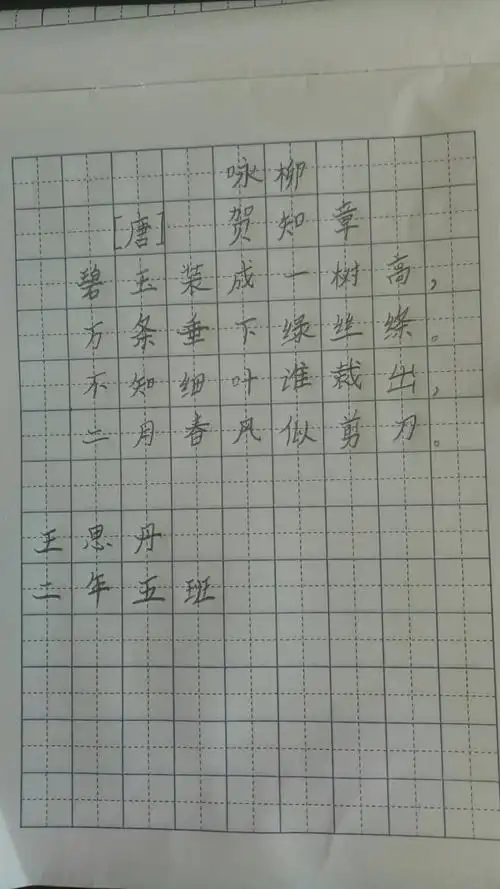 咏柳
[唐] 贺知章
碧玉装成一树高，
万条垂下绿丝绦。
不知细叶谁裁出，
二月春风似剪刀。
王思丹
二年五班